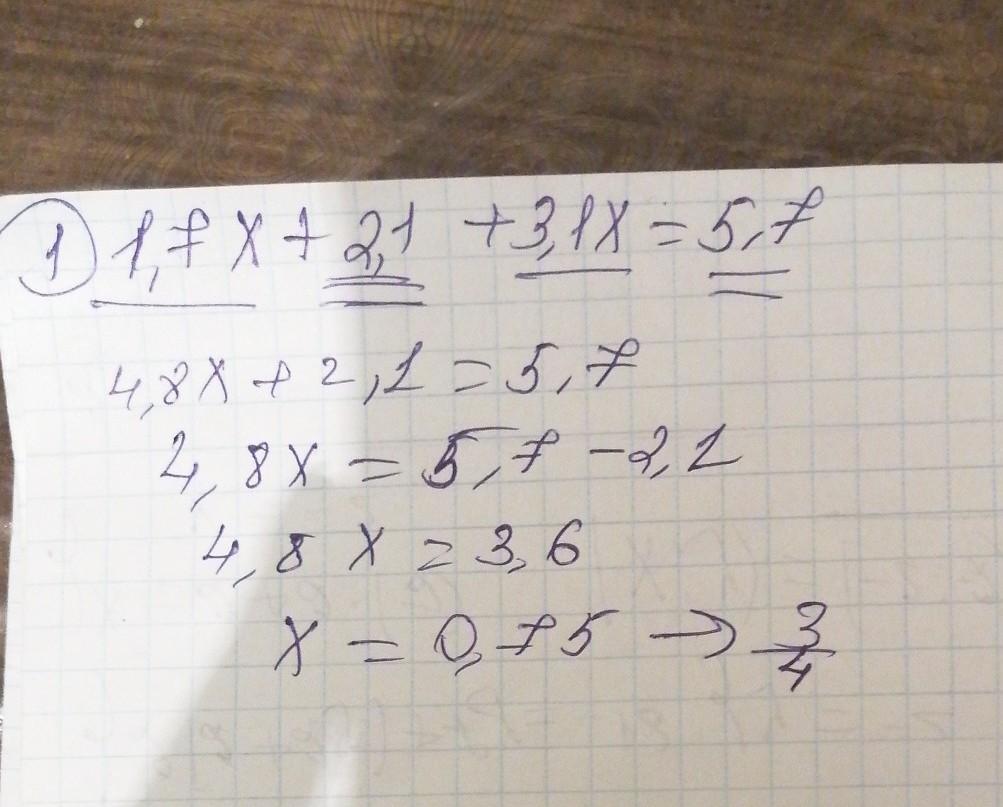 1 1,7x + 2,1 + 3,1x = 5,7
4,8x + 2,1 = 5,7
4,8x = 5,7 - 2,1
4,8x = 3,6
x = 0,75 → 3/4